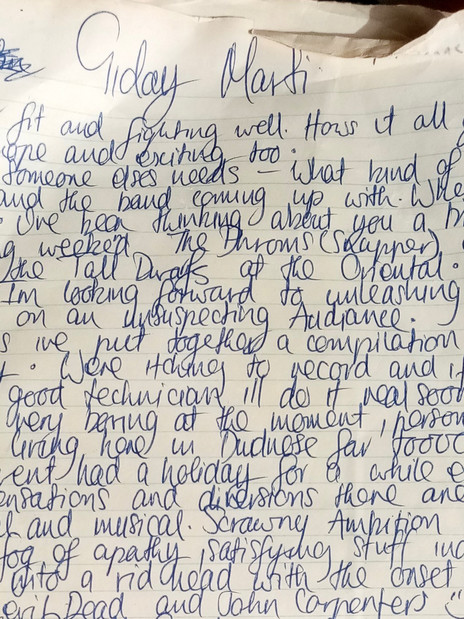 Giday Marti
fit and fighting well. Hows it all
and exciting too.
Someone elses needs – What kind of
and the band coming up with. Whe
Ive been thinking about you a
weekend The Throms (Skapper)
the Tall Dwarfs at the Oriental.
Im looking forward to unleashing
on an unsuspecting Audiance.
s ive put together a compilation
Were itching to record and if
good technician ill do it real soon
very boring at the moment, person
living here in Dudnose far toooo
vent had a holiday for a while
ensations and diversions there are
and musical. Scrawny Ampition
fog of apathy, satisfying stuff
into a rid head with the onset
Dead and John Carpenters